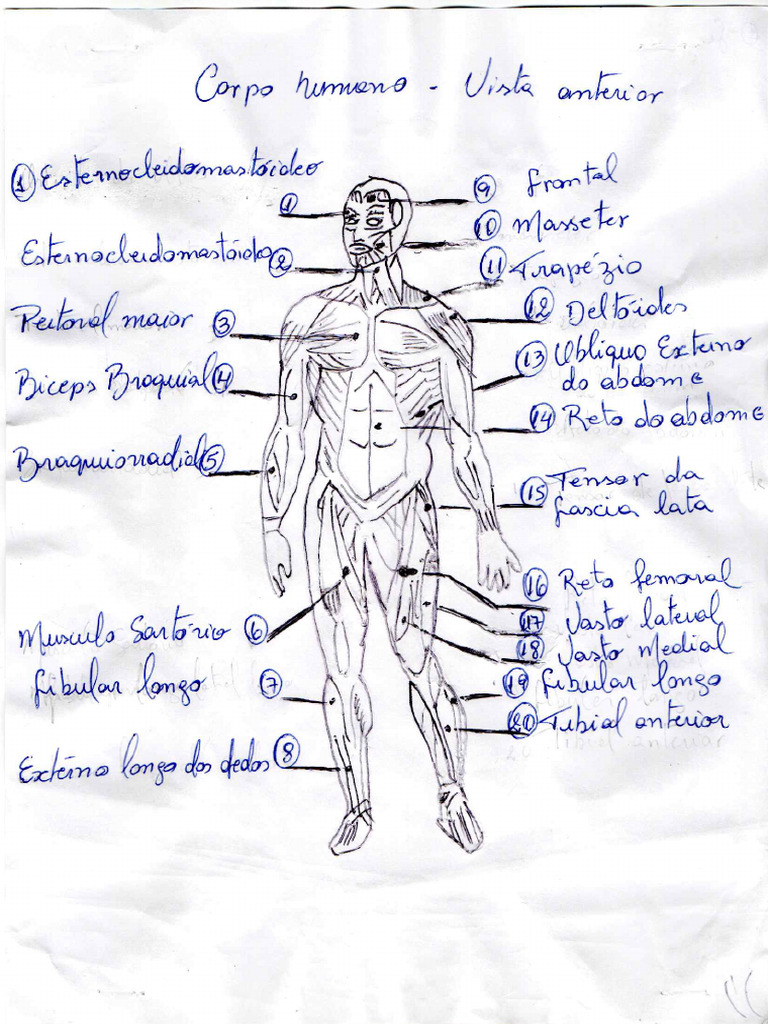 Corpo humano - Vista anterior
1 Esternocleidomastóideo
1
Esternocleidomastóideo 2
Peitoral maior 3
Biceps Braquial 4
Braquiorradial 5
Musculo Sartório 6
fibular longo 7
Externo longo dos dedos 8
9 frontal
10 Masseter
11 Trapézio
12 Deltóides
13 Obliquo Externo
do abdome
14 Reto do abdome
15 Tensor da
fascia lata
16 Reto femoral
17 Vasto lateral
18 Vasto Medial
19 fibular longo
20 Tibial anterior